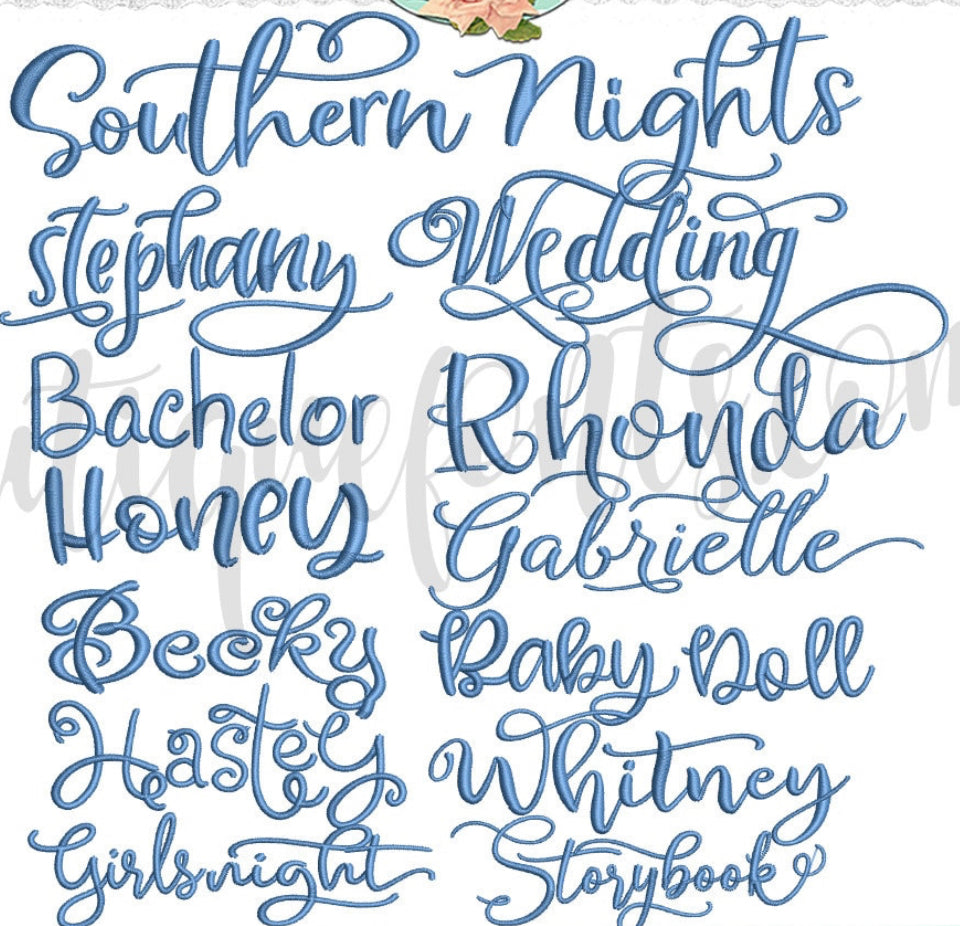 Southern Nights
stephany Wedding
Bachelor Rhonda
Honey Gabrielle
Becky Baby Doll
Hastey Whitney
Girlsnight Storybook